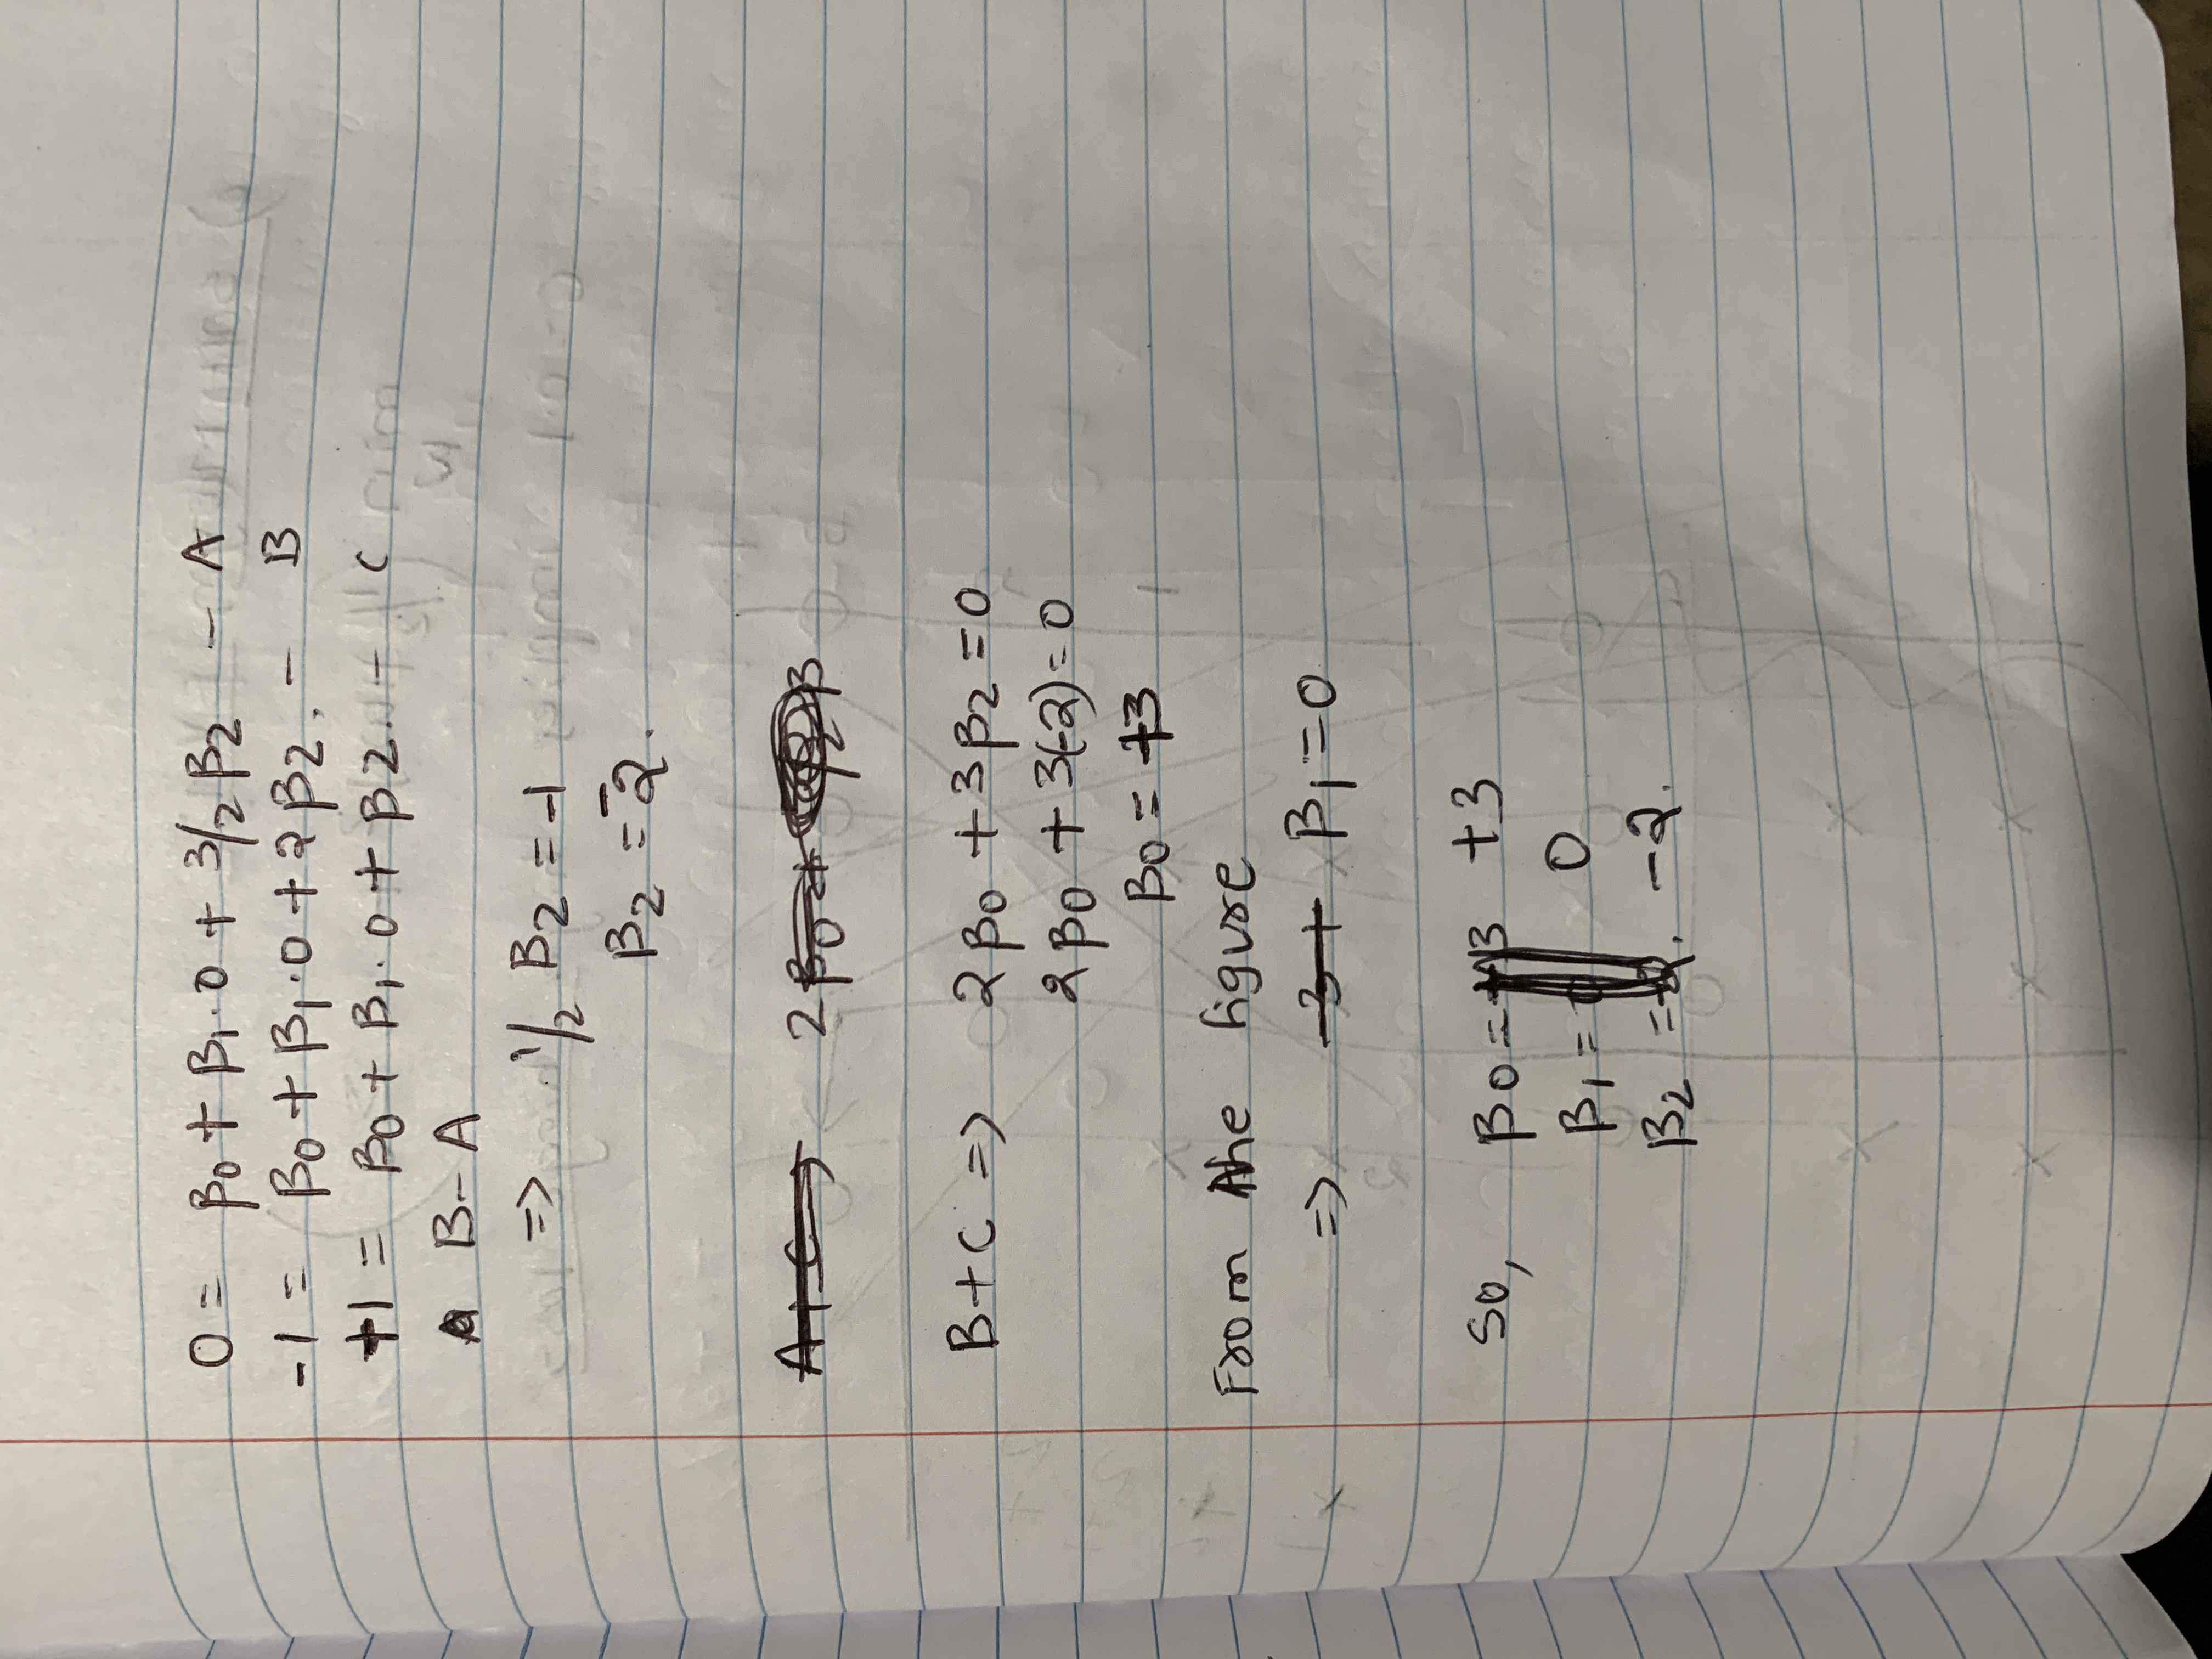 0 = β0 + β1·0 + 3/2 β2 - A
-1 = β0 + β1·0 + 2β2. - B
+1 = β0 + β1·0 + β2. - C
B-A
=> 1/2 β2 = -1
β2 = -2.
A+C => 2β0+ β
B+C => 2β0 + 3β2 = 0
2β0 + 3(-2) = 0
β0 = +3
From the figure
=> -3+ β1 = 0
So, β0 = +3 +3
β1 = 0
β2 = -2. -2.